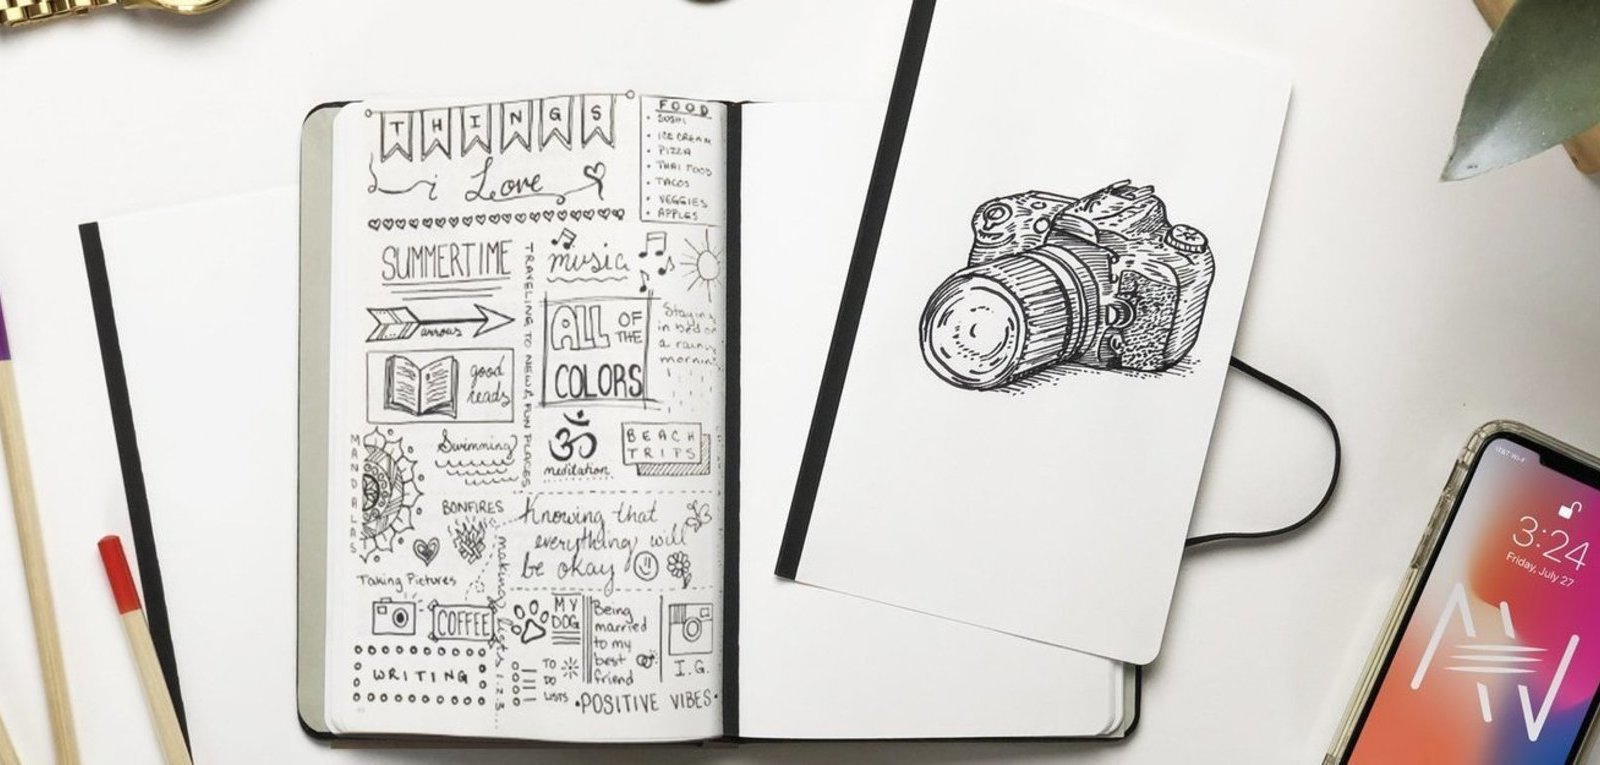 THINGS
i Love
FOOD
• SUSHI
• ICE CREAM
• PIZZA
• THAI FOOD
• TACOS
• VEGGIES
• APPLES
SUMMERTIME
TRAVELING TO NEW & FUN PLACES
music
arrows
ALL OF
THE
COLORS
Staying
in bed on
a rainy
morning
good
reads
MANDALAS
Swimming
meditation
BEACH
TRIPS
ॐ
BONFIRES
making lists 1.2.3.
Knowing that
everything will
be okay
Taking Pictures
COFFEE
MY
DOG
Being
married
to my
best
friend
I.G.
WRITING
TO
DO
LISTS
•POSITIVE VIBES•
AT&T Wi-Fi
3:24
Friday, July 27